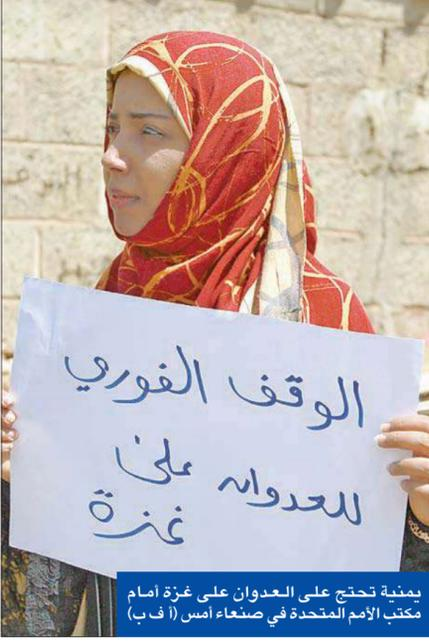 الوقف الفوري
للعدوان على
غزة
يمنية تحتج على العدوان على غزة أمام
مكتب الأمم المتحدة في صنعاء أمس (أ ف ب)